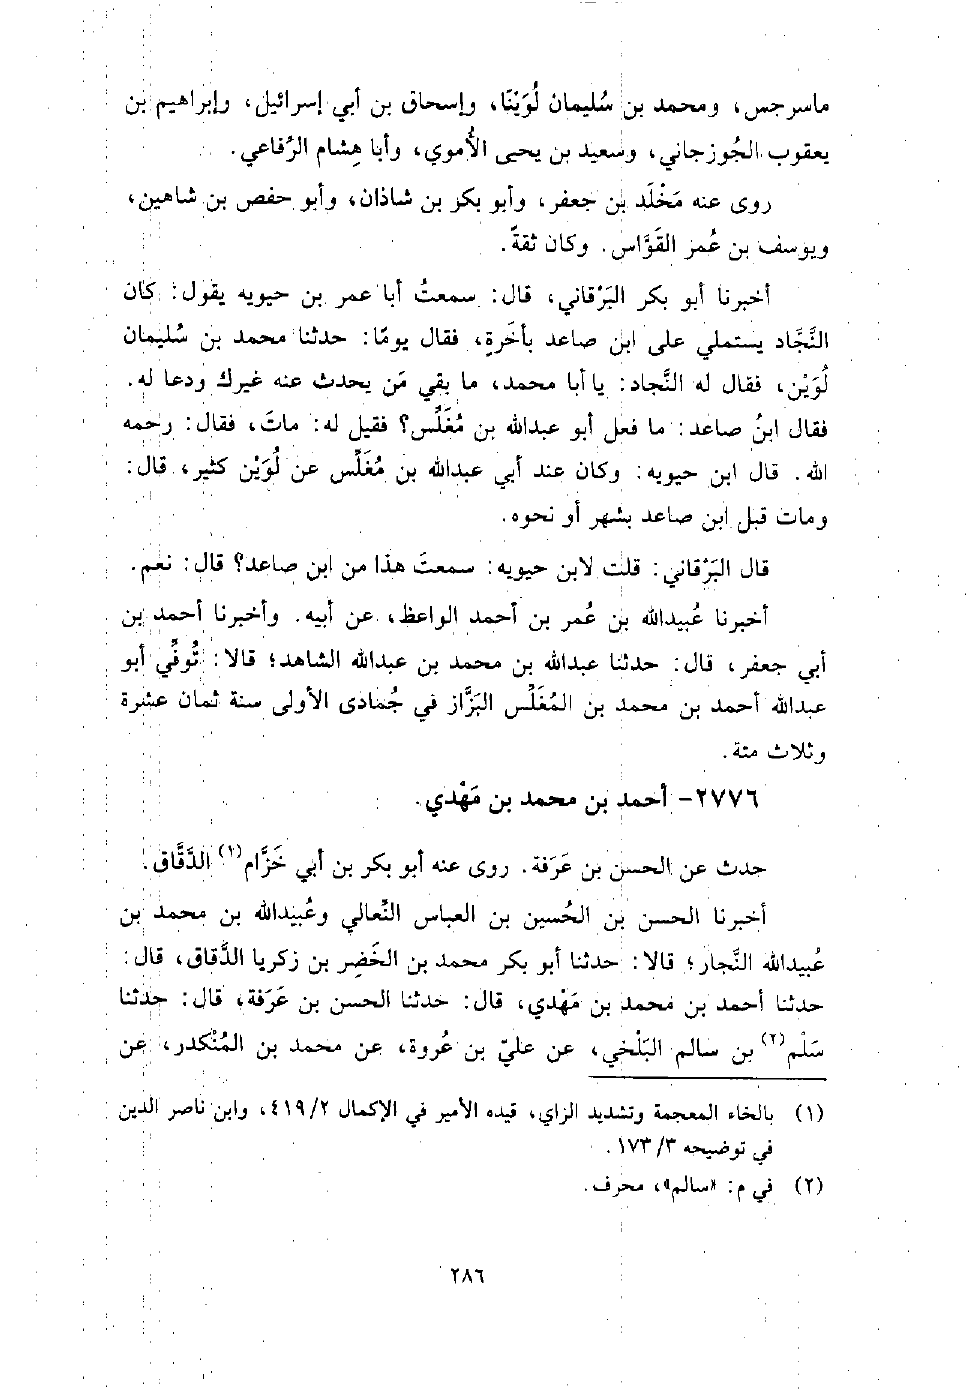 ماسرجس، ومحمد بن سُليمان لُوَيْنًا، وإسحاق بن أبي إسرائيل، وإبراهيم بن
يعقوب الجُوزجاني، وسعيد بن يحيى الأُموي، وأبا هِشام الرِّفاعي.
روى عنه مَخْلَد بن جعفر، وأبو بكر بن شاذان، وأبو حفص بن شاهين،
ويوسف بن عُمر القَوَّاس. وكان ثقةً.
أخبرنا أبو بكر البَرْقاني، قال: سمعتُ أبا عمر بن حيويه يقول: كان
النَّجَّاد يستملي على ابن صاعد بأَخَرةٍ، فقال يومًا: حدثنا محمد بن سُليمان
لُوَيْن، فقال له النَّجاد: يا أبا محمد، ما بقي مَن يحدث عنه غيرك ودعا له.
فقال ابنُ صاعد: ما فعل أبو عبدالله بن مُغَلِّس؟ فقيل له: ماتَ، فقال: رحمه
الله. قال ابن حيويه: وكان عند أبي عبدالله بن مُغَلِّس عن لُوَيْن كثير، قال:
ومات قبل ابن صاعد بشهر أو نحوه.
قال البَرْقاني: قلت لابن حيويه: سمعتَ هذا من ابن صاعد؟ قال: نعم.
أخبرنا عُبيدالله بن عُمر بن أحمد الواعظ، عن أبيه. وأخبرنا أحمد بن
أبي جعفر، قال: حدثنا عبدالله بن محمد بن عبدالله الشاهد؛ قالا: تُوفِّي أبو
عبدالله أحمد بن محمد بن المُغَلِّس البَزَّاز في جُمادى الأولى سنة ثمان عشرة
وثلاث مئة.
٢٧٧٦- أحمد بن محمد بن مَهْدي.
حدث عن الحسن بن عَرَفة. روى عنه أبو بكر بن أبي خَزَّام(١) الدَّقَّاق.
أخبرنا الحسن بن الحُسين بن العباس النِّعالي وعُبيدالله بن محمد بن
عُبيدالله النَّجار؛ قالا: حدثنا أبو بكر محمد بن الخَضِر بن زكريا الدَّقاق، قال:
حدثنا أحمد بن محمد بن مَهْدي، قال: حدثنا الحسن بن عَرَفة، قال: حدثنا
سَلْم(٢) بن سالم البَلْخي، عن عليّ بن عُروة، عن محمد بن المُنْكدر، عن
(١) بالخاء المعجمة وتشديد الزاي، قيده الأمير في الإكمال ٢/ ٤١٩، وابن ناصر الدين
في توضيحه ٣/ ١٧٣.
(٢) في م: «سالم»، محرف.
٢٨٦